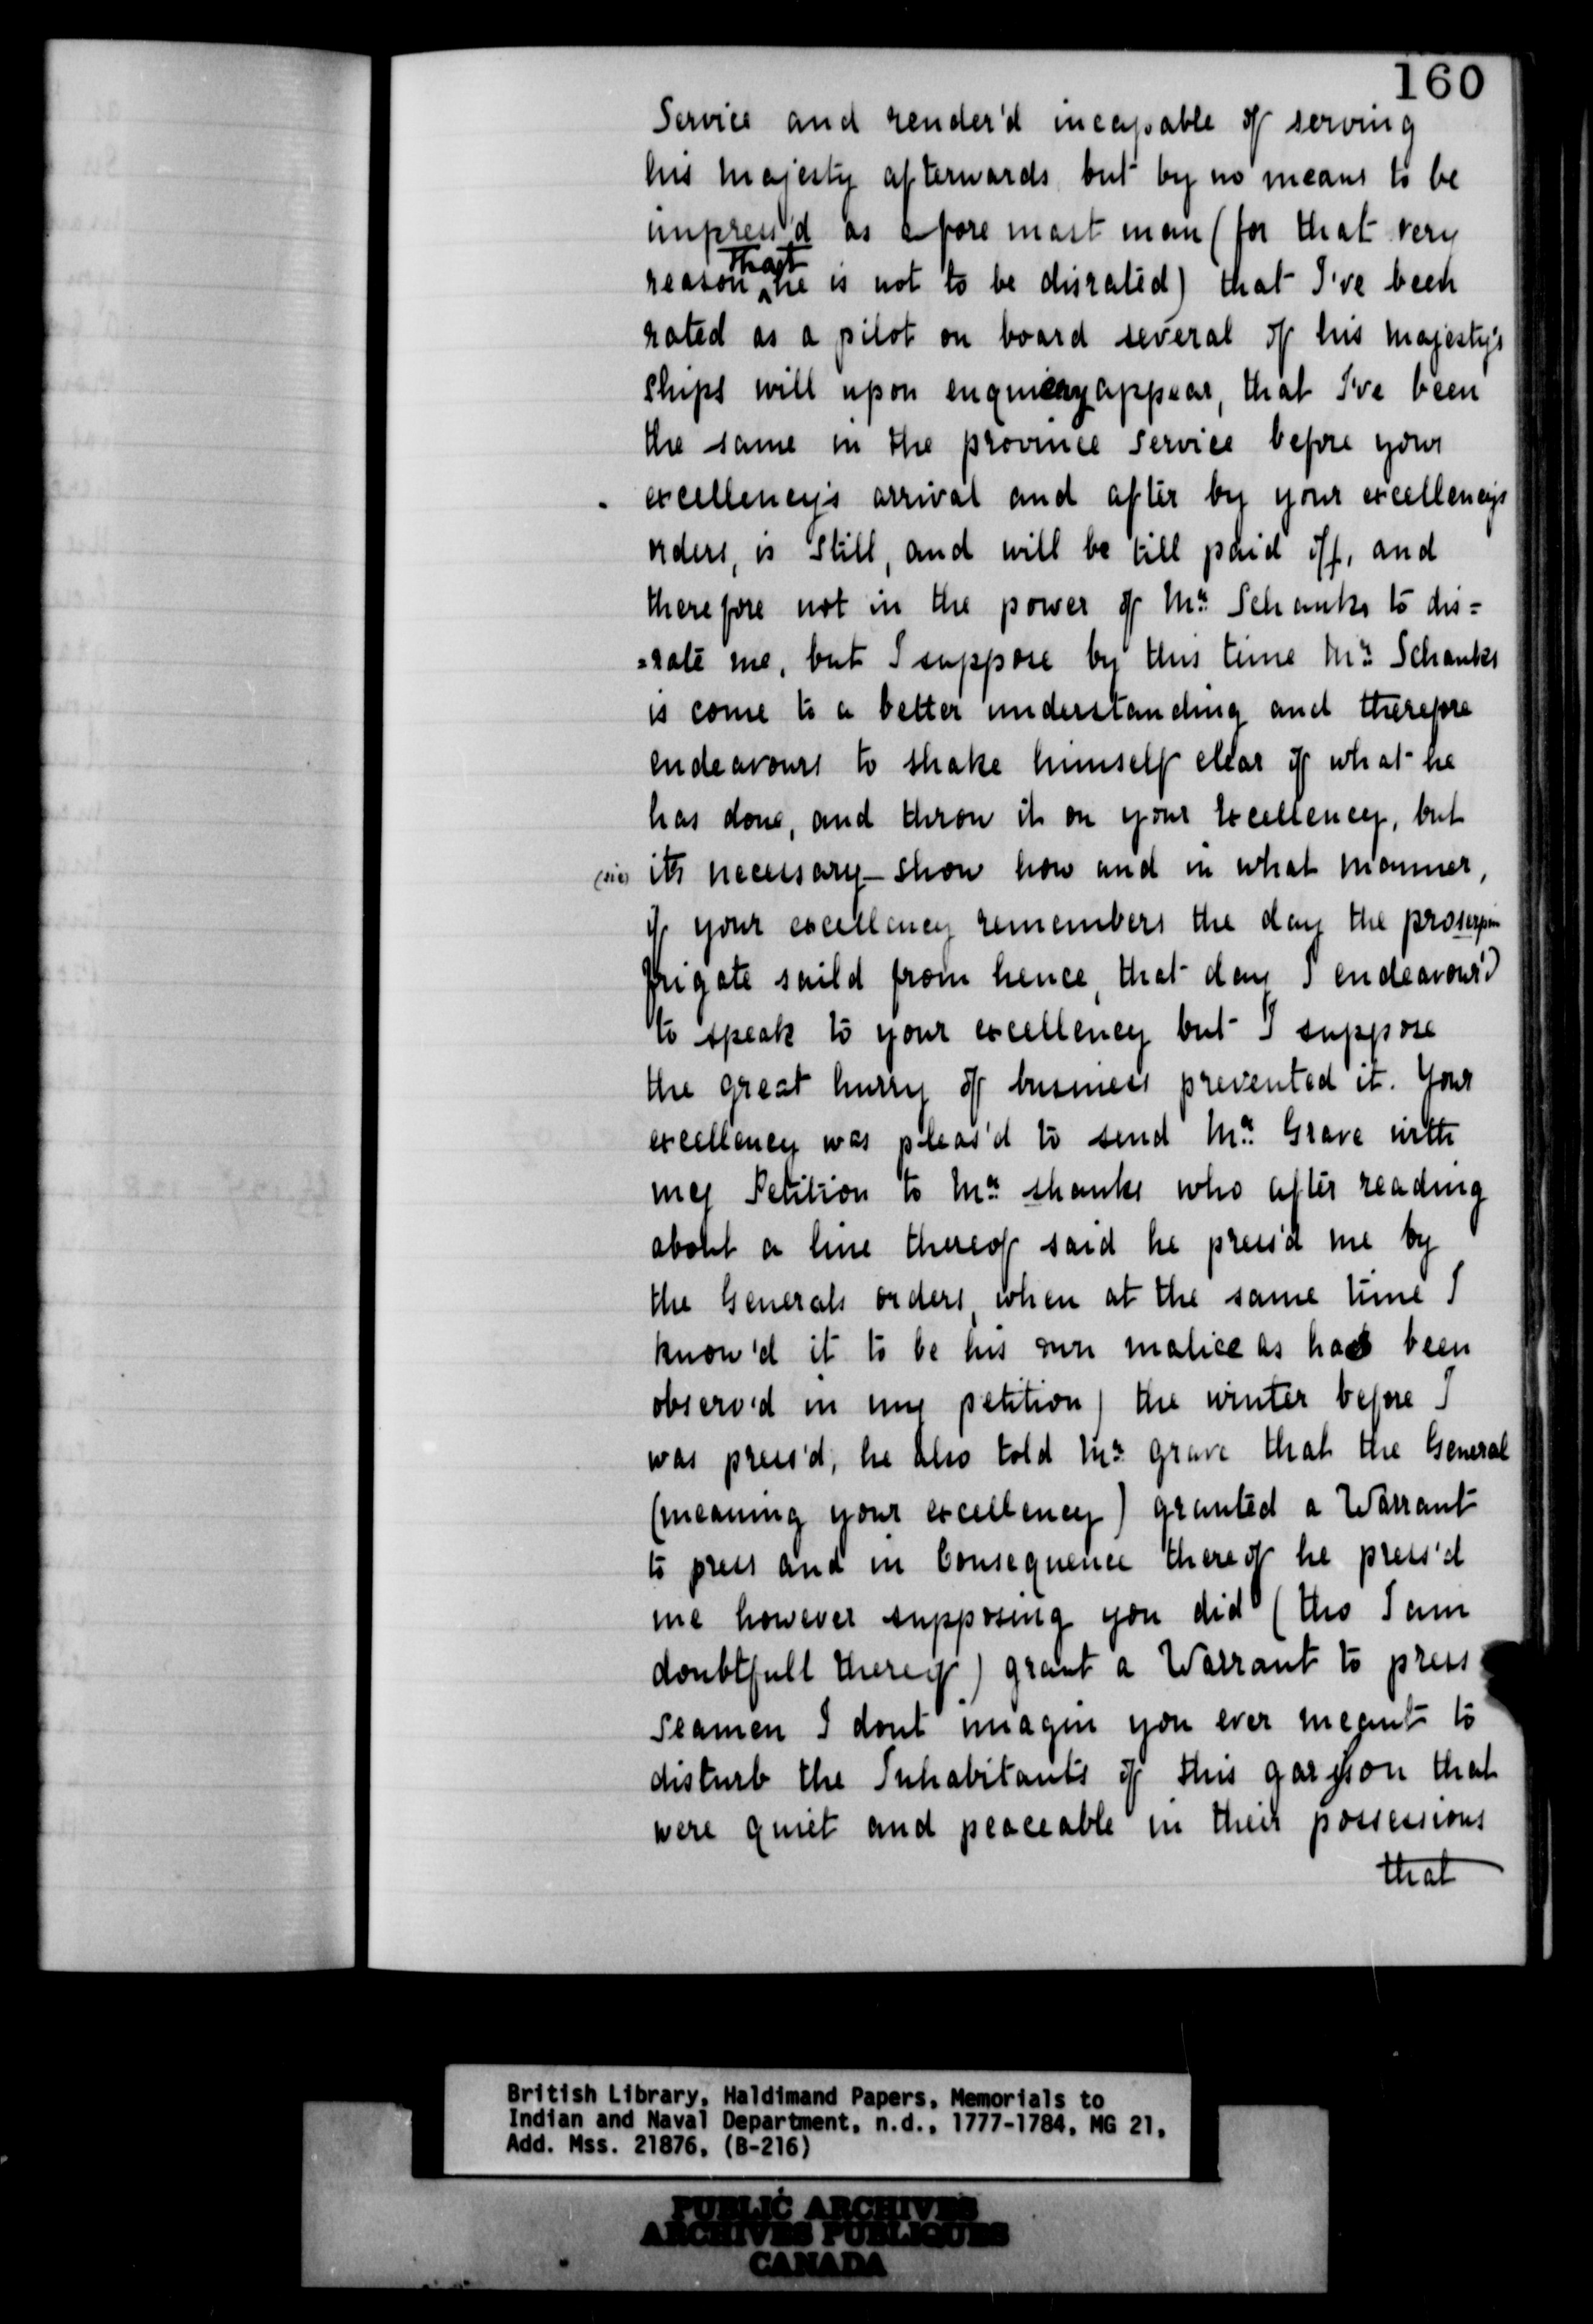 160
Service and render'd incapable of serving
his majesty afterwards but by no means to be
impress'd as a fore mast man (for that very
reason that he is not to be disrated) that I've been
rated as a pilot on board several of his majesty's
ships will upon enquiry appear, that I've been
the same in the province service before your
excellency's arrival and after by your excellencys
orders, is still, and will be till paid off, and
therefore not in the power of Mr. Schanks to dis=
=rate me, but I suppose by this time Mr. Schanks
is come to a better understanding and therefore
endeavours to shake himself clear of what he
has done, and throw it on your Excellency, but
(sic) its necessary show how and in what manner,
if your excellency remembers the day the proserpin
frigate saild from hence, that day I endeavour'd
to speak to your excellency but I suppose
the great hurry of business prevented it. Your
excellency was pleas'd to send Mr. Grave with
my Petition to Mr. shanks who after reading
about a line thereof said he press'd me by
the Generals orders, when at the same time I
know'd it to be his own malice as had been
observ'd in my petition) the winter before I
was press'd, he also told Mr. grave that the General
(meaning your excellency) granted a Warrant
to press and in Consequence thereof he press'd
me however supposing you did (tho I am
doubtfull thereof) grant a Warrant to press
Seamen I dont imagin you ever meant to
disturb the Inhabitants of this garison that
were quiet and peaceable in their possessions
that
British Library, Haldimand Papers, Memorials to
Indian and Naval Department, n.d., 1777-1784, MG 21,
Add. Mss. 21876, (B-216)
PUBLIC ARCHIVES
ARCHIVES PUBLIQUES
CANADA